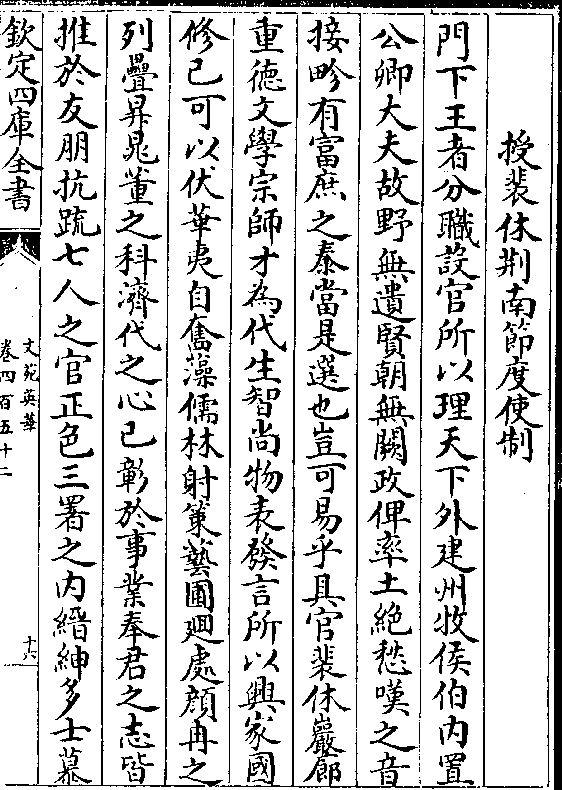 授裴休荆南節度使制
門下王者分職設官所以理天下外建州牧侯伯内置
公卿大夫故野無遺賢朝無闕政俾率土絶愁嘆之音
接畛有富庶之泰當是選也豈可易乎具官裴休巖廊
重德文學宗師才為代生智尚物表發言所以興家國
修已可以伏華夷自奮藻儒林射策藝圃廻處顔冉之
列疊昇晁董之科濟代之心已彰於事業奉君之志皆
推於友朋抗疏七人之官正色三署之内縉紳多士慕
欽定四庫全書
文苑英華
卷四百五十二
十六